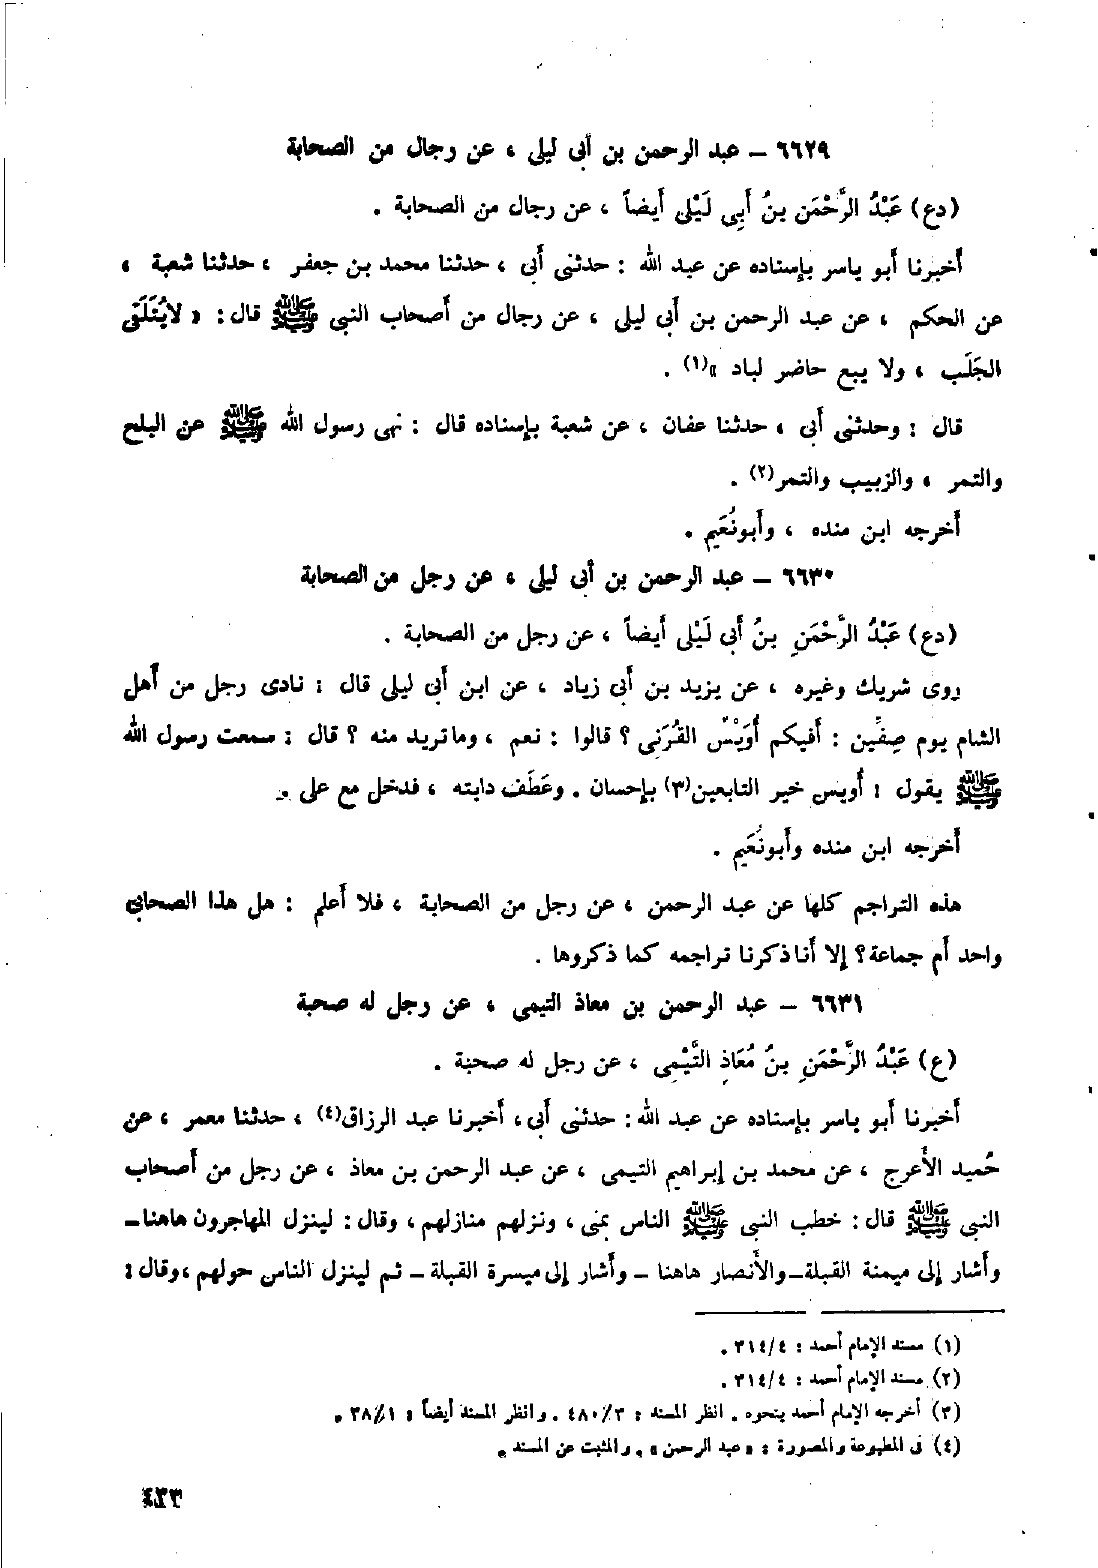 ٦٦٢٩ – عبد الرحمن بن أبى ليلى ، عن رجال من الصحابة
(دع) عَبْدُ الرَّحْمَن بنُ أَبِى لَيْلى أَيضاً ، عن رجال من الصحابة .
أَخبرنا أَبو ياسر بإِسناده عن عبد الله : حدثنى أَبى ، حدثنا محمد بن جعفر ، حدثنا شعبة ،
عن الحكم ، عن عبد الرحمن بن أَبى ليلى ، عن رجال من أَصحاب النبى ﷺ قال : « لايُتَلَقَّى
الجَلَب ، ولا يبع حاضر لباد »(١) .
قال : وحدثنى أَبى ، حدثنا عفان ، عن شعبة بإِسناده قال : نهى رسول الله ﷺ عن البلح
والتمر ، والزبيب والتمر(٢) .
أَخرجه ابن منده ، وأَبونُعَيم .
٦٦٣٠ – عبد الرحمن بن أبى ليلى ، عن رجل من الصحابة
(دع) عَبْدُ الرَّحْمَنِ بنُ أَبى لَيْلى أَيضاً ، عن رجل من الصحابة .
روى شريك وغيره ، عن يزيد بن أَبى زياد ، عن ابن أَبى ليلى قال : نادى رجل من أَهل
الشام يوم صِفِّين : أَفيكم أُوَيْسٌ القُرَنِى ؟ قالوا : نعم ، وماتريد منه ؟ قال : سمعت رسول الله
ﷺ يقول : أُويس خير التابعين(٣) بإِحسان . وعَطَف دابته ، فدخل مع على .
أَخرجه ابن منده وأَبونُعَيم .
هذه التراجم كلها عن عبد الرحمن ، عن رجل من الصحابة ، فلا أَعلم : هل هذا الصحابى
واحد أَم جماعة ؟ إِلا أَنا ذكرنا تراجمه كما ذكروها .
٦٦٣١ – عبد الرحمن بن معاذ التيمى ، عن رجل له صحبة
(ع) عَبْدُ الرَّحْمَنِ بنُ مُعَاذِ التَّيْمِى ، عن رجل له صحبة .
أَخبرنا أَبو ياسر بإِسناده عن عبد الله : حدثنى أَبى ، أَخبرنا عبد الرزاق(٤) ، حدثنا معمر ، عن
حُميد الأَعرج ، عن محمد بن إِبراهيم التيمى ، عن عبد الرحمن بن معاذ ، عن رجل من أَصحاب
النبى ﷺ قال : خطب النبى ﷺ الناس بمنى ، ونزلهم منازلهم ، وقال : لينزل المهاجرون هاهنا–
وأَشار إِلى ميمنة القبلة–والأَنصار هاهنا – وأَشار إِلى ميسرة القبلة – ثم لينزل الناس حولهم ، وقال :
(١) مسند الإمام أحمد : ٣١٤/٤ .
(٢) مسند الإمام أحمد : ٣١٤/٤ .
(٣) أخرجه الإمام أحمد بنحوه . انظر المسند : ٤٨٠/٣ . وانظر المسند أيضاً : ٣٨/١ .
(٤) فى المطبوعة والمصورة : « عبد الرحمن » . والمثبت عن المسند .
٤٣٣